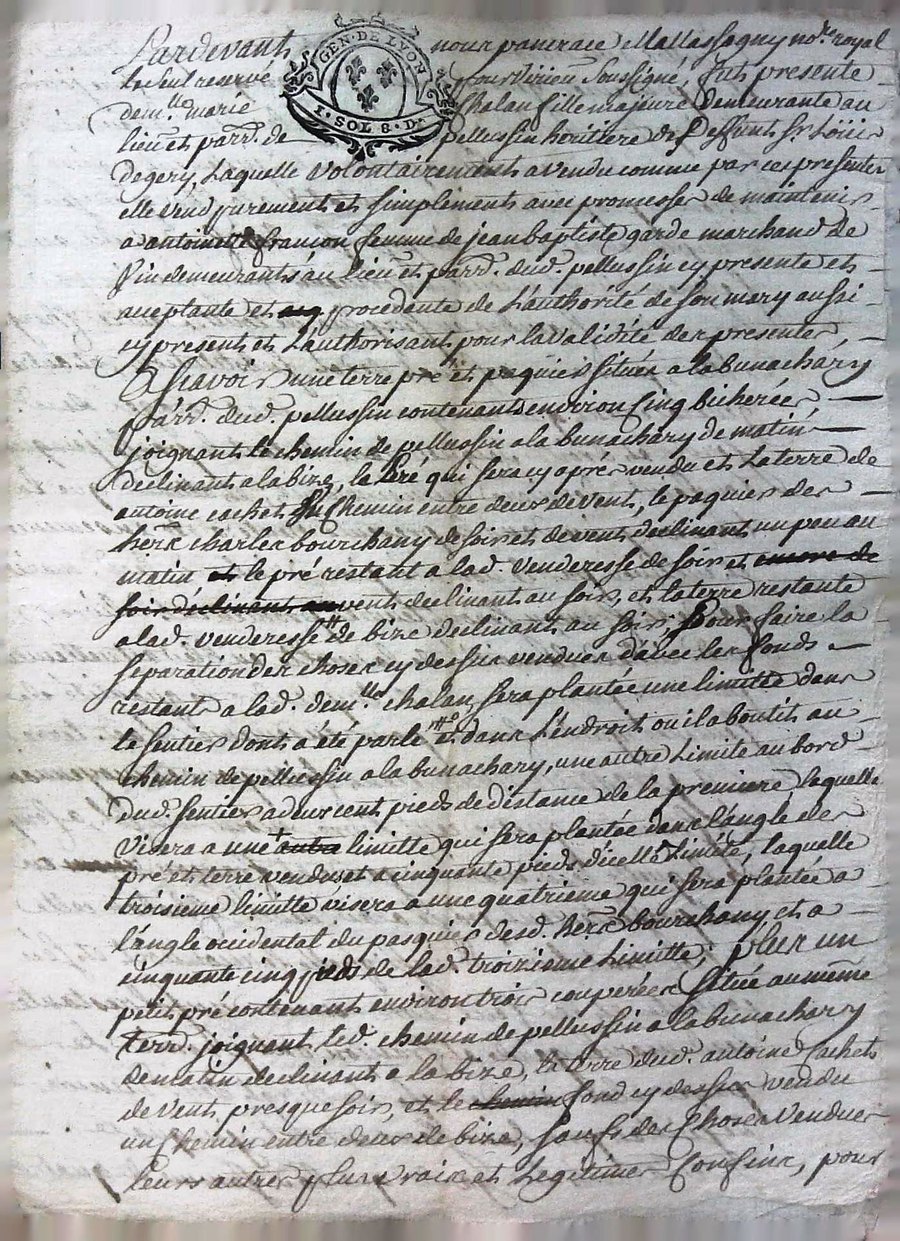 Pardevant nous pancrace Mallassagny no.re royal
GEN · DE LYON
1 · SOL 8 · D.rs
reservé pour Virieu soussigné, fut presente
dem.lle marie Chalan fille majeure demeurante au
lieu et parr. de pellussin heritiere de deffunt Sr. Loüis
degery, Laquelle volontairement a vendu comme par ces presentes
elle vend purement et simplement avec promesse de maintenir
a antoinette francon femme de jean baptiste garde marchand de
vin demeurants au lieu et parr. dud. pellussin cy presente et
acceptante et procedente de L'authorité de son mary aussi
cy present et L'authorisant pour la validité des presentes
a sçavoir une terre pré et paquier située a la bunachary
parr. dud. pellussin contenant environ cinq bicherées
joignant le chemin de pellussin a la bunachary de matin
declinant a la bize, le pré qui sera cy aprés vendu et La terre de
antoine cachet un chemin entre deux de vent, le paquier des
herr. charles bourchany de soir et de vent declinant un peu au
matin et le pré restant a lad. venderesse de soir et encore de
soir declinant au vent declinant au soir, et la terre restante
a lad. venderesse de bize declinant au soir; Pour faire la
separation des choses cy dessus vendues d'avec les fonds
restant a lad. dem.lle chalan, sera plantée une limitte dans
le sentier dont a été parlé et dans L'endroit ou il aboutit au
chemin de pellussin a la bunachary, une autre Limite au bord
dud. sentier a deux cent pieds de distance de la premiere laquelle
visera a une autre limitte qui sera plantée dans l'angle des
pré et terre vendus et a cinquante pieds d'icelle Limite, laquelle
troisieme limitte visera a une quatrieme qui sera plantée a
l'angle occidental du pasquier desd. herr. bourchany et a
cinquante cinq pieds de lad. troizieme Limitte; plus un
petit pré contenant environ trois couperées située au même
terr. joignant led. chemin de pellussin a la bunachary
de matin declinant a la bize, la terre dud. antoine Cachet
de vent presque soir, et le chemin fond cy dessus vendu
un chemin entre deux de bize, sauf des choses vendues
leurs autres plus vrais et Legitimes Confins, pour